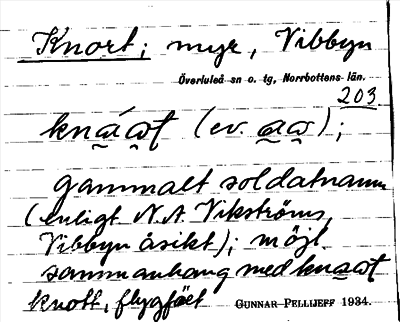 Knort; myr, Vibbyn
Överluleå sn o. tg, Norrbottens län.
203
(ev. );
gammalt soldatnamn
(enligt N.A. Vikströms,
Vibbyn åsikt); möjl.
sammanhang med
knott, flygfäet GUNNAR PELLIJEFF 1934.